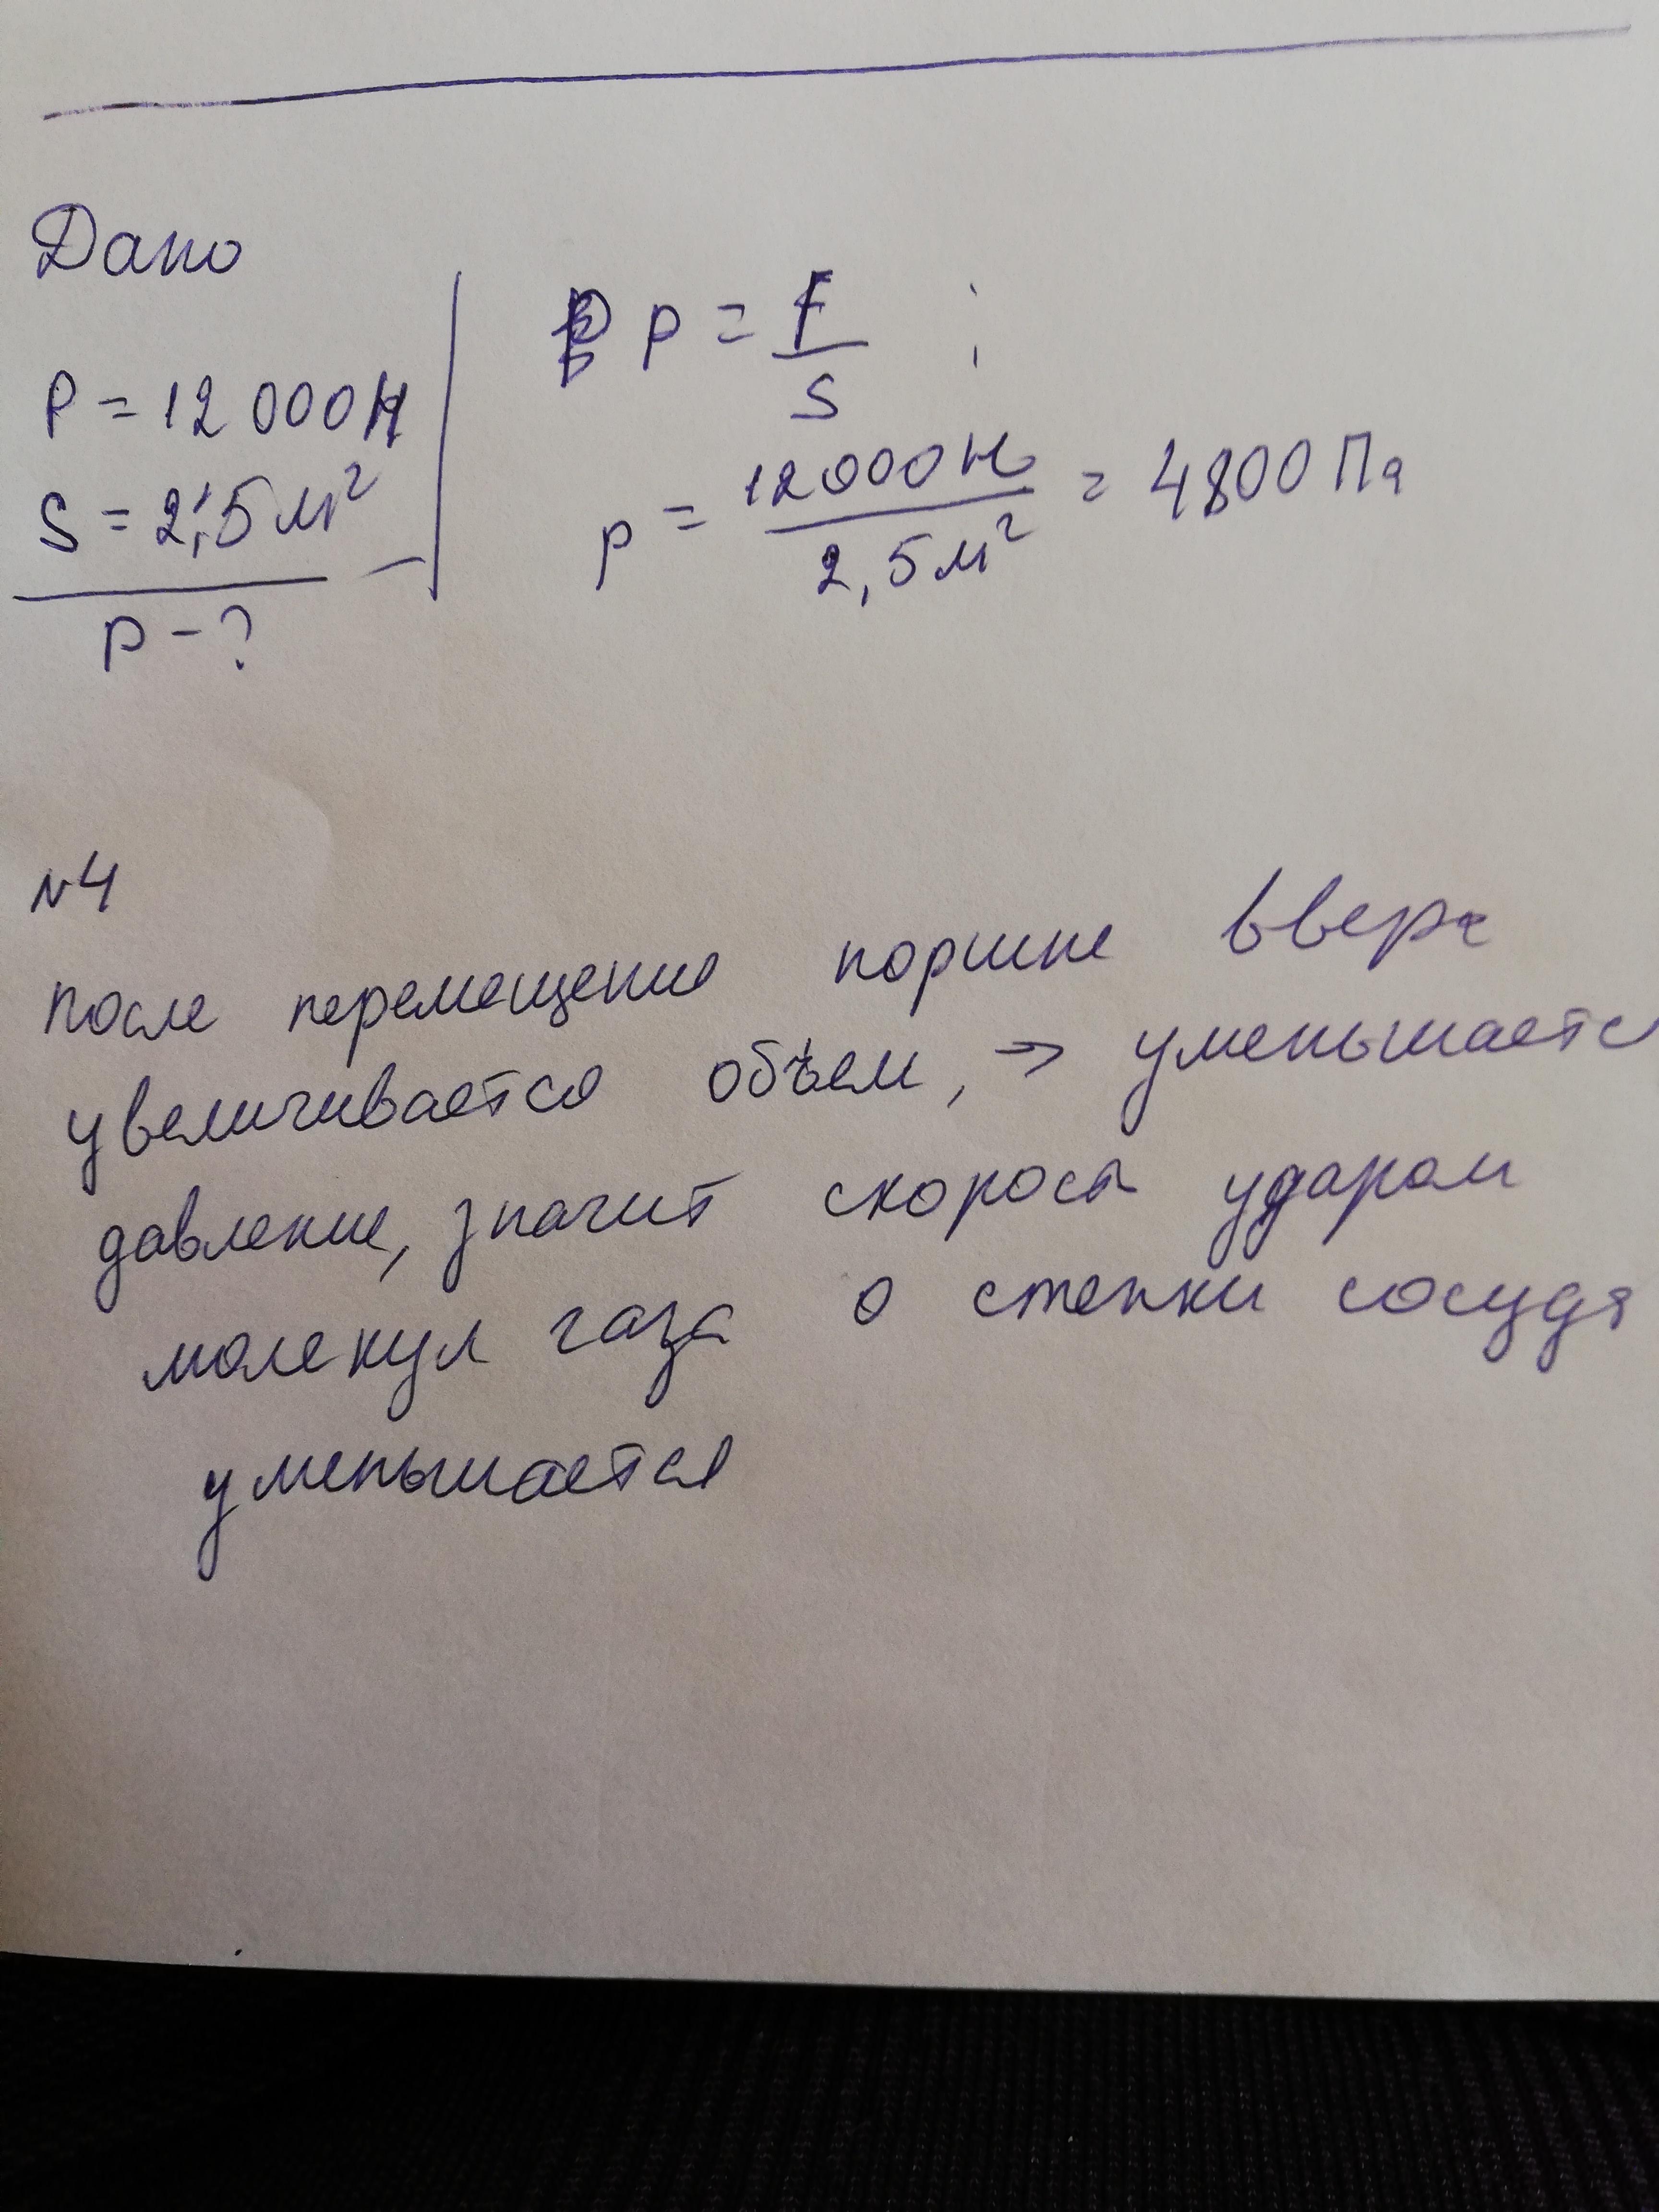 Дано
P = 12 000 Н
S = 2,5 м²
p - ?
p = F/S ;
p = 12000 Н / 2,5 м² = 4800 Па
N4
после перемещение поршне вверх
увеличивается объем, → уменьшаетс
давление, значит скорость ударом
молекул газа о стенки сосуда
уменьшается